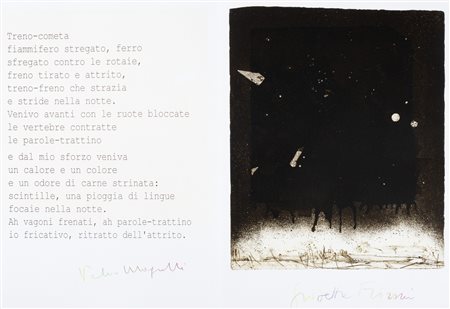 Treno-cometa
fiammifero stregato, ferro
sfregato contro le rotaie,
freno tirato e attrito,
treno-freno che strazia
e stride nella notte.
Venivo avanti con le ruote bloccate
le vertebre contratte
le parole-trattino
e dal mio sforzo veniva
un calore e un colore
e un odore di carne strinata:
scintille, una pioggia di lingue
focaie nella notte.
Ah vagoni frenati, ah parole-trattino
io fricativo, ritratto dell'attrito.
Valerio Magrelli